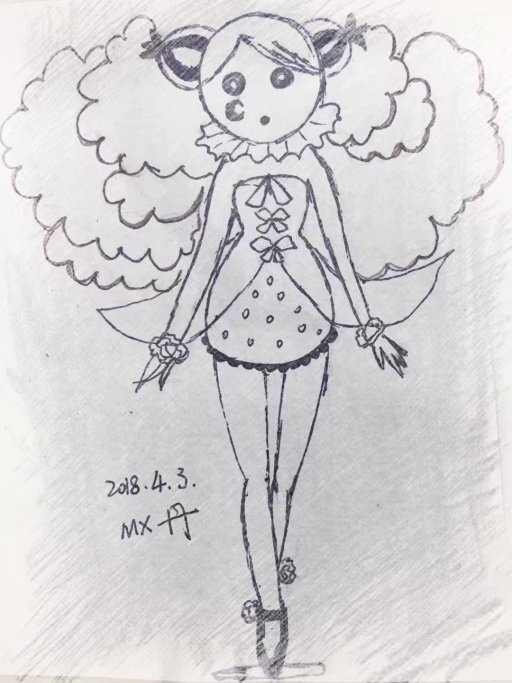 2018.4.3.
MX 丹